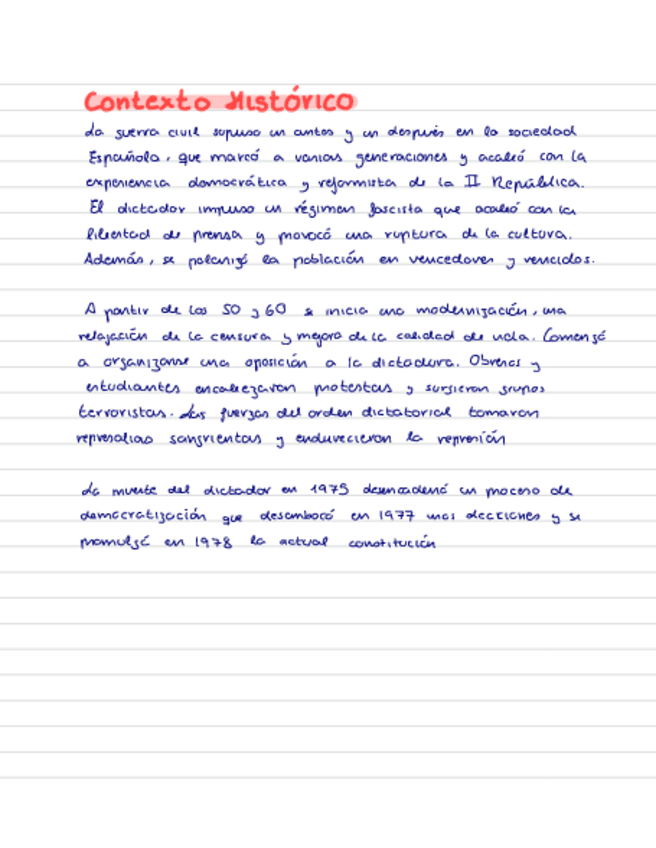 Contexto Histórico
La guerra civil supuso un antes y un después en la sociedad
Española, que marcó a varias generaciones y acabó con la
experiencia democrática y reformista de la II República.
El dictador impuso un régimen fascista que acabó con la
libertad de prensa y provocó una ruptura de la cultura.
Además, se polarizó la población en vencedores y vencidos.
A partir de los 50 y 60 se inicia una modernización, una
relajación de la censura y mejora de la calidad de vida. Comenzó
a organizarse una oposición a la dictadura. Obreros y
estudiantes encabezaron protestas y surgieron grupos
terroristas. Las fuerzas del orden dictatorial tomaron
represalias sangrientas y endurecieron la represión
La muerte del dictador en 1975 desencadenó un proceso de
democratización que desembocó en 1977 unas elecciones y se
promulgó en 1978 la actual constitución